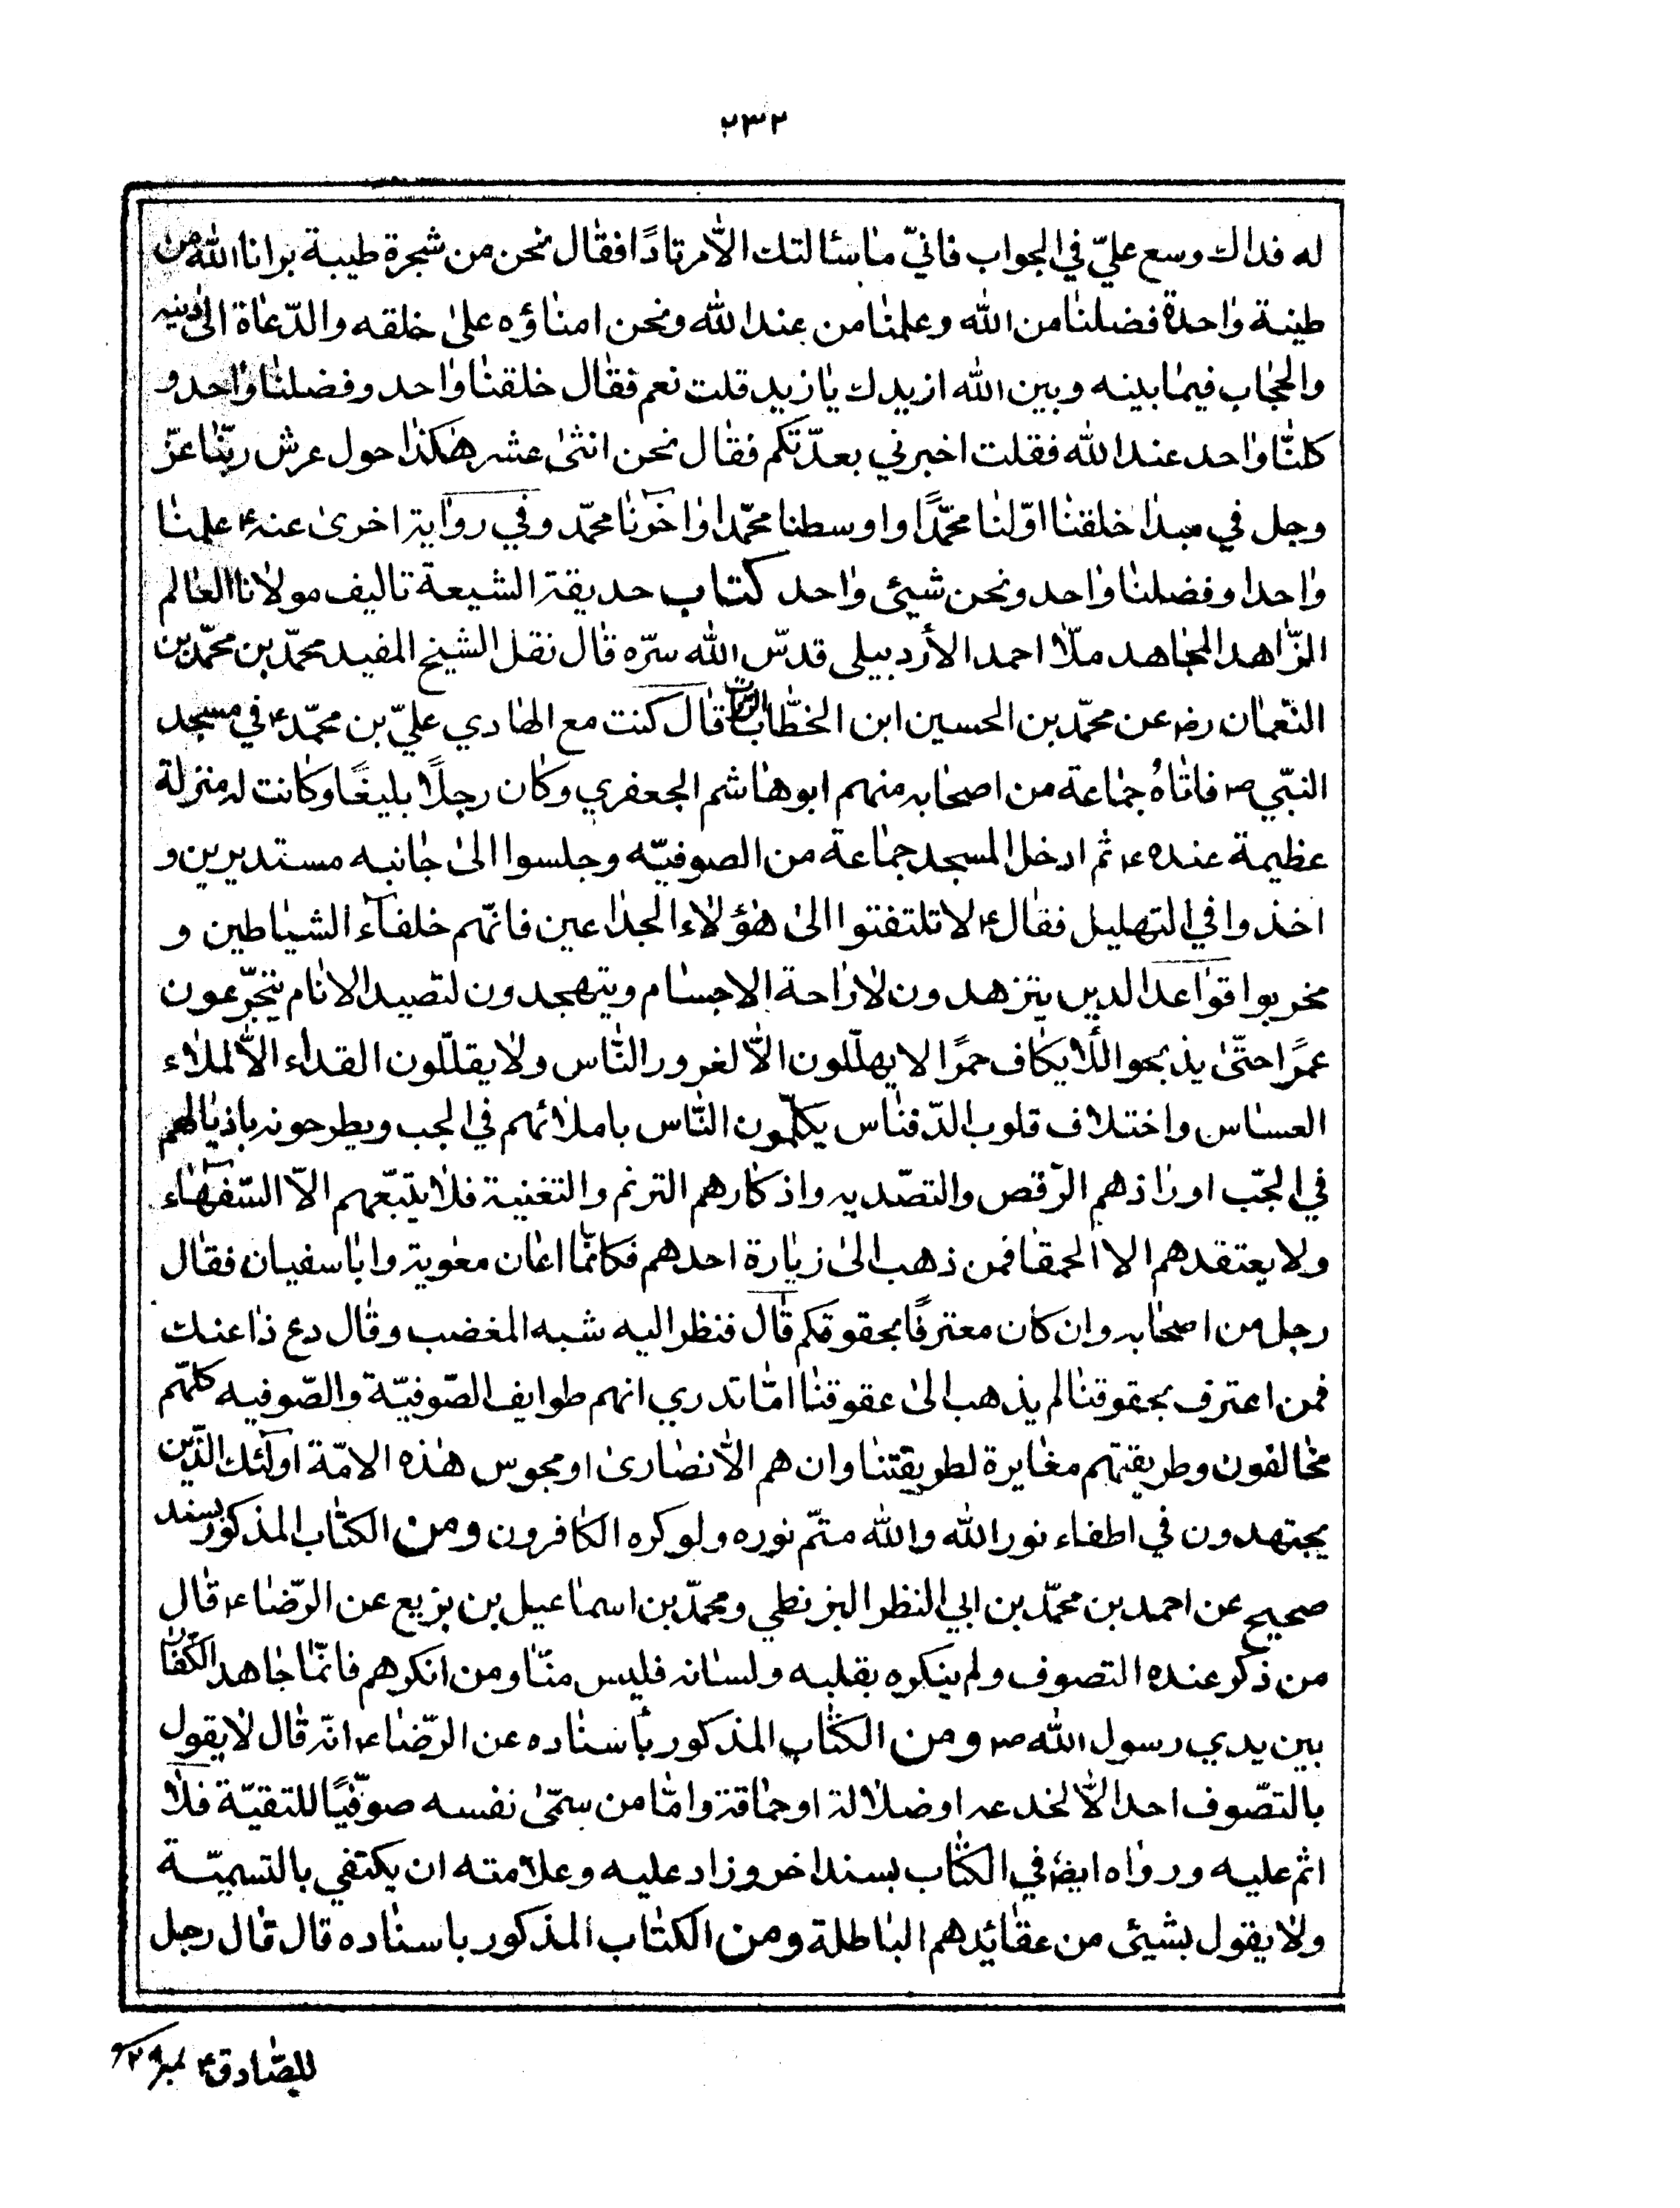 ٢٣٢
له فداك وسع عليّ في الجواب فانيّ ما سئالتك الاّ مرتادًا فقال نحن من شجرة طيبة برانا الله من
طينة واحدة فضلنا من الله وعلمنا من عند الله ونحن امناؤه على خلقه والدّعاة الى دينه
والحجاب فيما بينه وبين الله ازيدك يا زيد قلت نعم فقال خلقنا واحد وفضلنا واحد و
كلنّا واحد عند الله فقلت اخبرني بعدّتكم فقال نحن اثنى عشر هكذا حول عرش ربّنا عزّ
وجل في مبدا خلقنا اوّلنا محمّدًا واوسطنا محمّدا واخرنا محمّد وفي رواية اخرى عنه ع علمنا
واحدا وفضلنا واحد ونحن شيئ واحد كتاب حديقة الشيعة تاليف مولانا العالم
الزّاهد المجاهد ملّا احمد الأردبيلى قدسّ الله سرّه قال نقل الشيخ المفيد محمّد بن محمّد بن
النّعمان رض عن محمّد بن الحسين ابن الخطّاب قال كنت مع الهادي عليّ بن محمّد ع في مسجد
النبّي ص فاتاهُ جماعة من اصحابه منهم ابو هاشم الجعفري وكان رجلًا بليغًا وكانت له منزلة
عظيمة عنده ع ثم ادخل المسجد جماعة من الصوفيّه وجلسوا الى جانبه مستديرين و
اخذوا في التهليل فقال ع لا تلتفتوا الى هؤلاء الجذاعين فانهّم خلفآء الشياطين و
مخربوا قواعد الدين يتزهدون لاراحة الاجسام ويتهجدون لتصيد الانام يتجرّعون
عمرًا حتّى يذبحوا للأيكاف حمرًا لا يهلّلون الاّ لغرور النّاس ولا يقللّون القداء الاّ لملاء
العساس واختلاف قلوب الدّفناس يكلّمون النّاس باملائهم في الجب ويطرحونه باذيالهم
في الجّب اورادهم الرّقص والتصّديه واذكارهم الترنم والتغنية فلا يتبّعهم الاّ السّفهآء
ولا يعتقدهم الا الحمقا فمن ذهب الى زيارة احدهم فكانمّا اعان معوية وابا سفيان فقال
رجل من اصحابه وان كان معترفًا بحقوقكم قال فنظر اليه شبه المغضب وقال دع ذا عنك
فمن اعترف بحقوقنا لم يذهب الى عقوقنا امّا تدري انهم طوايف الصّوفيّة والصّوفيه كلهّم
مخالفون وطريقتهم مغايرة لطريقتنا وان هم الاّ نصارى او مجوس هذه الامّة اولئك الذّين
يجتهدون في اطفاء نور الله والله متمّ نوره ولو كره الكافرون ومن الكتاب المذكور بسند
صحيح عن احمد بن محمّد بن ابي النظر البزنطي ومحمّد بن اسماعيل بن بزيع عن الرّضا ع قال
من ذكر عنده التصوف ولم ينكره بقلبه ولسانه فليس منّا ومن انكرهم فانمّا جاهد الكفّار
بين يدي رسول الله ص ومن الكتاب المذكور بأسناده عن الرّضا ع انّه قال لا يقول
بالتصّوف احد الاّ لخدعه او ضلالة او حماقة وامّا من سمّى نفسه صوفّيًا للتقيّة فلا
اثم عليه ورواه ايض في الكتاب بسند اخر وزاد عليه وعلامته ان يكتفي بالتسميّة
ولا يقول بشيئ من عقائدهم الباطلة ومن الكتاب المذكور باسناده قال قال رجل
للصّادق ع